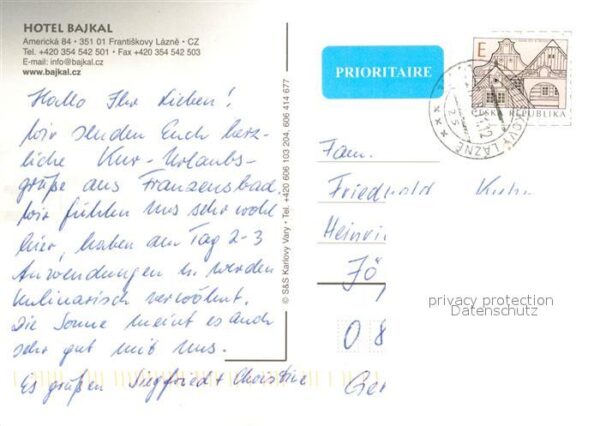 HOTEL BAJKAL
Americká 84 • 351 01 Františkovy Lázně • CZ
Tel. +420 354 542 501 • Fax +420 354 542 503
E-mail: info@bajkal.cz
www.bajkal.cz
Hallo Ihr Lieben!
Wir senden Euch herz-
liche Kur-Urlaubs-
grüße aus Franzensbad,
wir fühlen uns sehr wohl
hier, haben am Tag 2-3
Anwendungen u. werden
kulinarisch verwöhnt.
Die Sonne meint es auch
sehr gut mit uns.
Es grüßen Siegfried + Christine
© S&S Karlovy Vary • Tel. +420 606 103 204, 606 414 677
PRIORITAIRE
E
ČESKÁ REPUBLIKA
KOVY LÁZNĚ
Fam.
Friedhold Kuhn
Heinri
Jö
privacy protection
Datenschutz
08
Ger